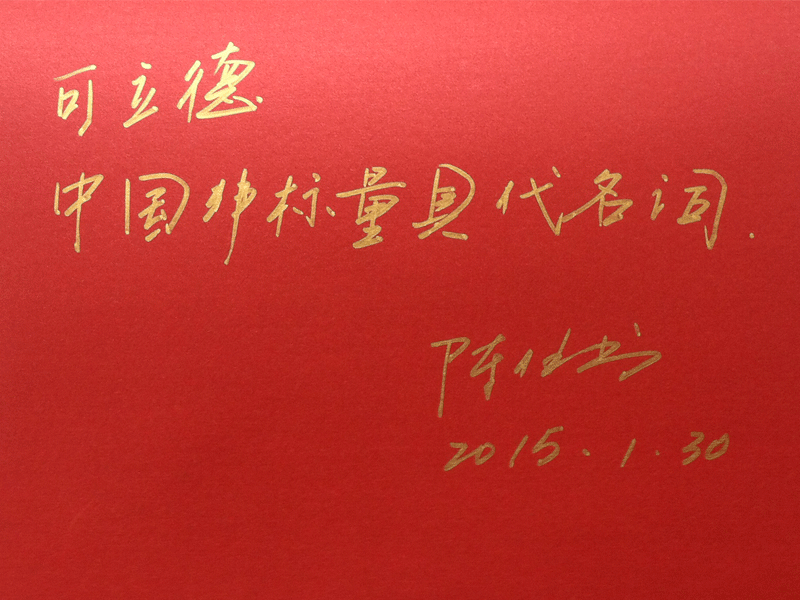 可立德
中国非标量具代名词.
陈
2015.1.30